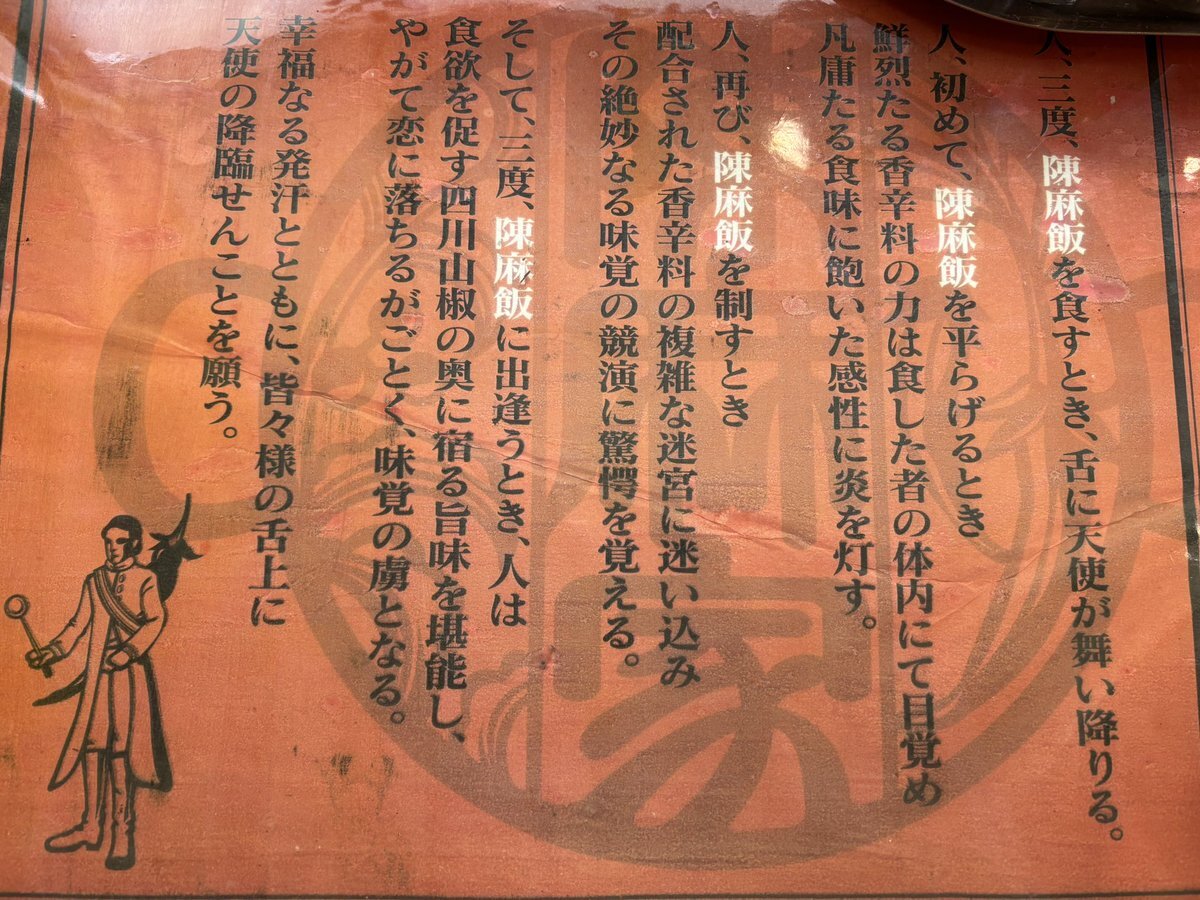 人、三度、陳麻飯を食すとき、舌に天使が舞い降りる。
人、初めて、陳麻飯を平らげるとき
鮮烈たる香辛料の力は食した者の体内にて目覚め
凡庸たる食味に飽いた感性に炎を灯す。
人、再び、陳麻飯を制すとき
配合された香辛料の複雑な迷宮に迷い込み
その絶妙なる味覚の競演に驚愕を覚える。
そして、三度、陳麻飯に出逢うとき、人は
食欲を促す四川山椒の奥に宿る旨味を堪能し、
やがて恋に落ちるがごとく、味覚の虜となる。
幸福なる発汗とともに、皆々様の舌上に
天使の降臨せんことを願う。